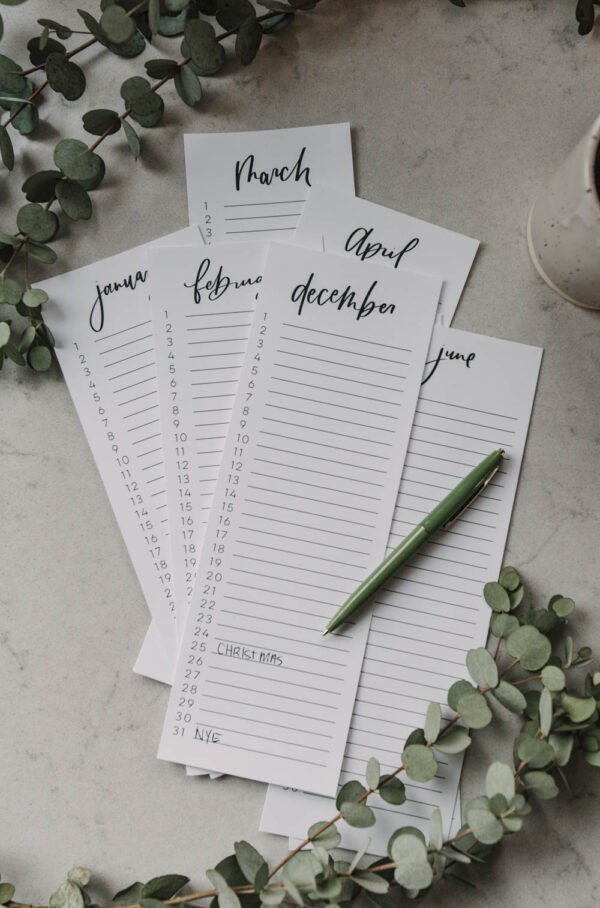 march
1
2
3
april
janua
1
2
3
4
5
6
7
8
9
10
11
12
13
14
15
16
17
18
19
februa
1
2
3
4
5
6
7
8
9
10
11
12
13
14
15
16
17
18
december
1
2
3
4
5
6
7
8
9
10
11
12
13
14
15
16
17
18
19
20
21
22
23
24
25 CHRISTMAS
26
27
28
29
30
31 NYE
june